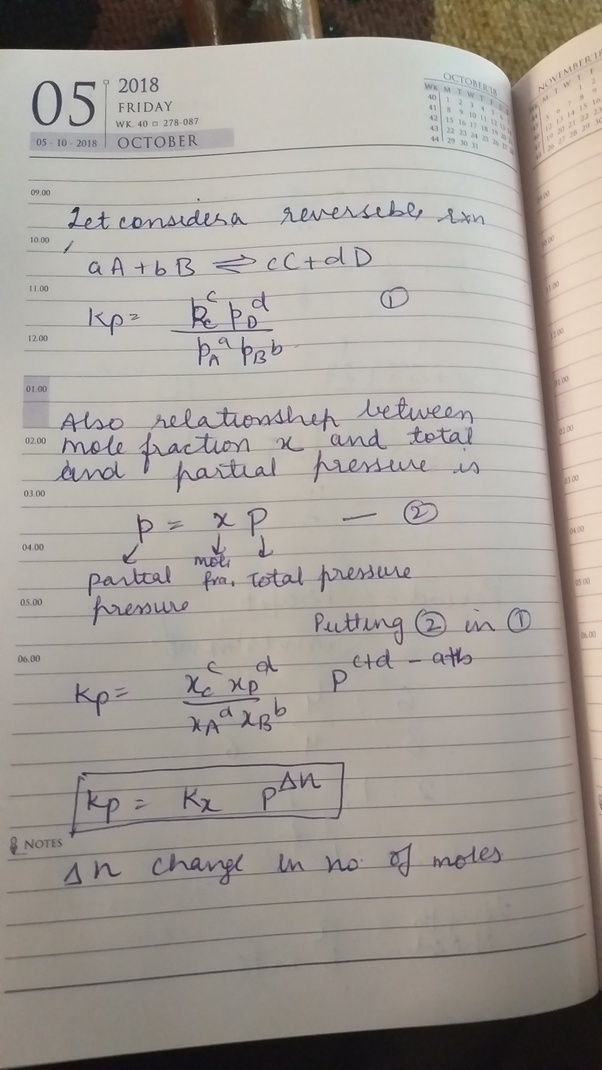 05
2018
FRIDAY
WK. 40 □ 278-087
05 - 10 - 2018 OCTOBER
OCTOBER'18
WK M T W T F
40 1 2 3 4 5
41 8 9 10 11 12
42 15 16 17 18 19
43 22 23 24 25 26
44 29 30 31
NOVEMBER'18
09.00
Let considera reversible rxn
10.00
aA + bB ⇌ cC + dD
11.00
Kp = p_C^c p_D^d / p_A^a p_B^b ①
12.00
01.00
Also relationship between
02.00
mole fraction x and total
and partial pressure is
03.00
p = x P — ②
04.00
↓ ↓ ↓
partial mole fra. total pressure
05.00
pressure
Putting ② in ①
06.00
Kp = x_C^c x_D^d / x_A^a x_B^b P^c+d - a+b
Kp = Kx P^Δn
NOTES
Δn change in no. of moles